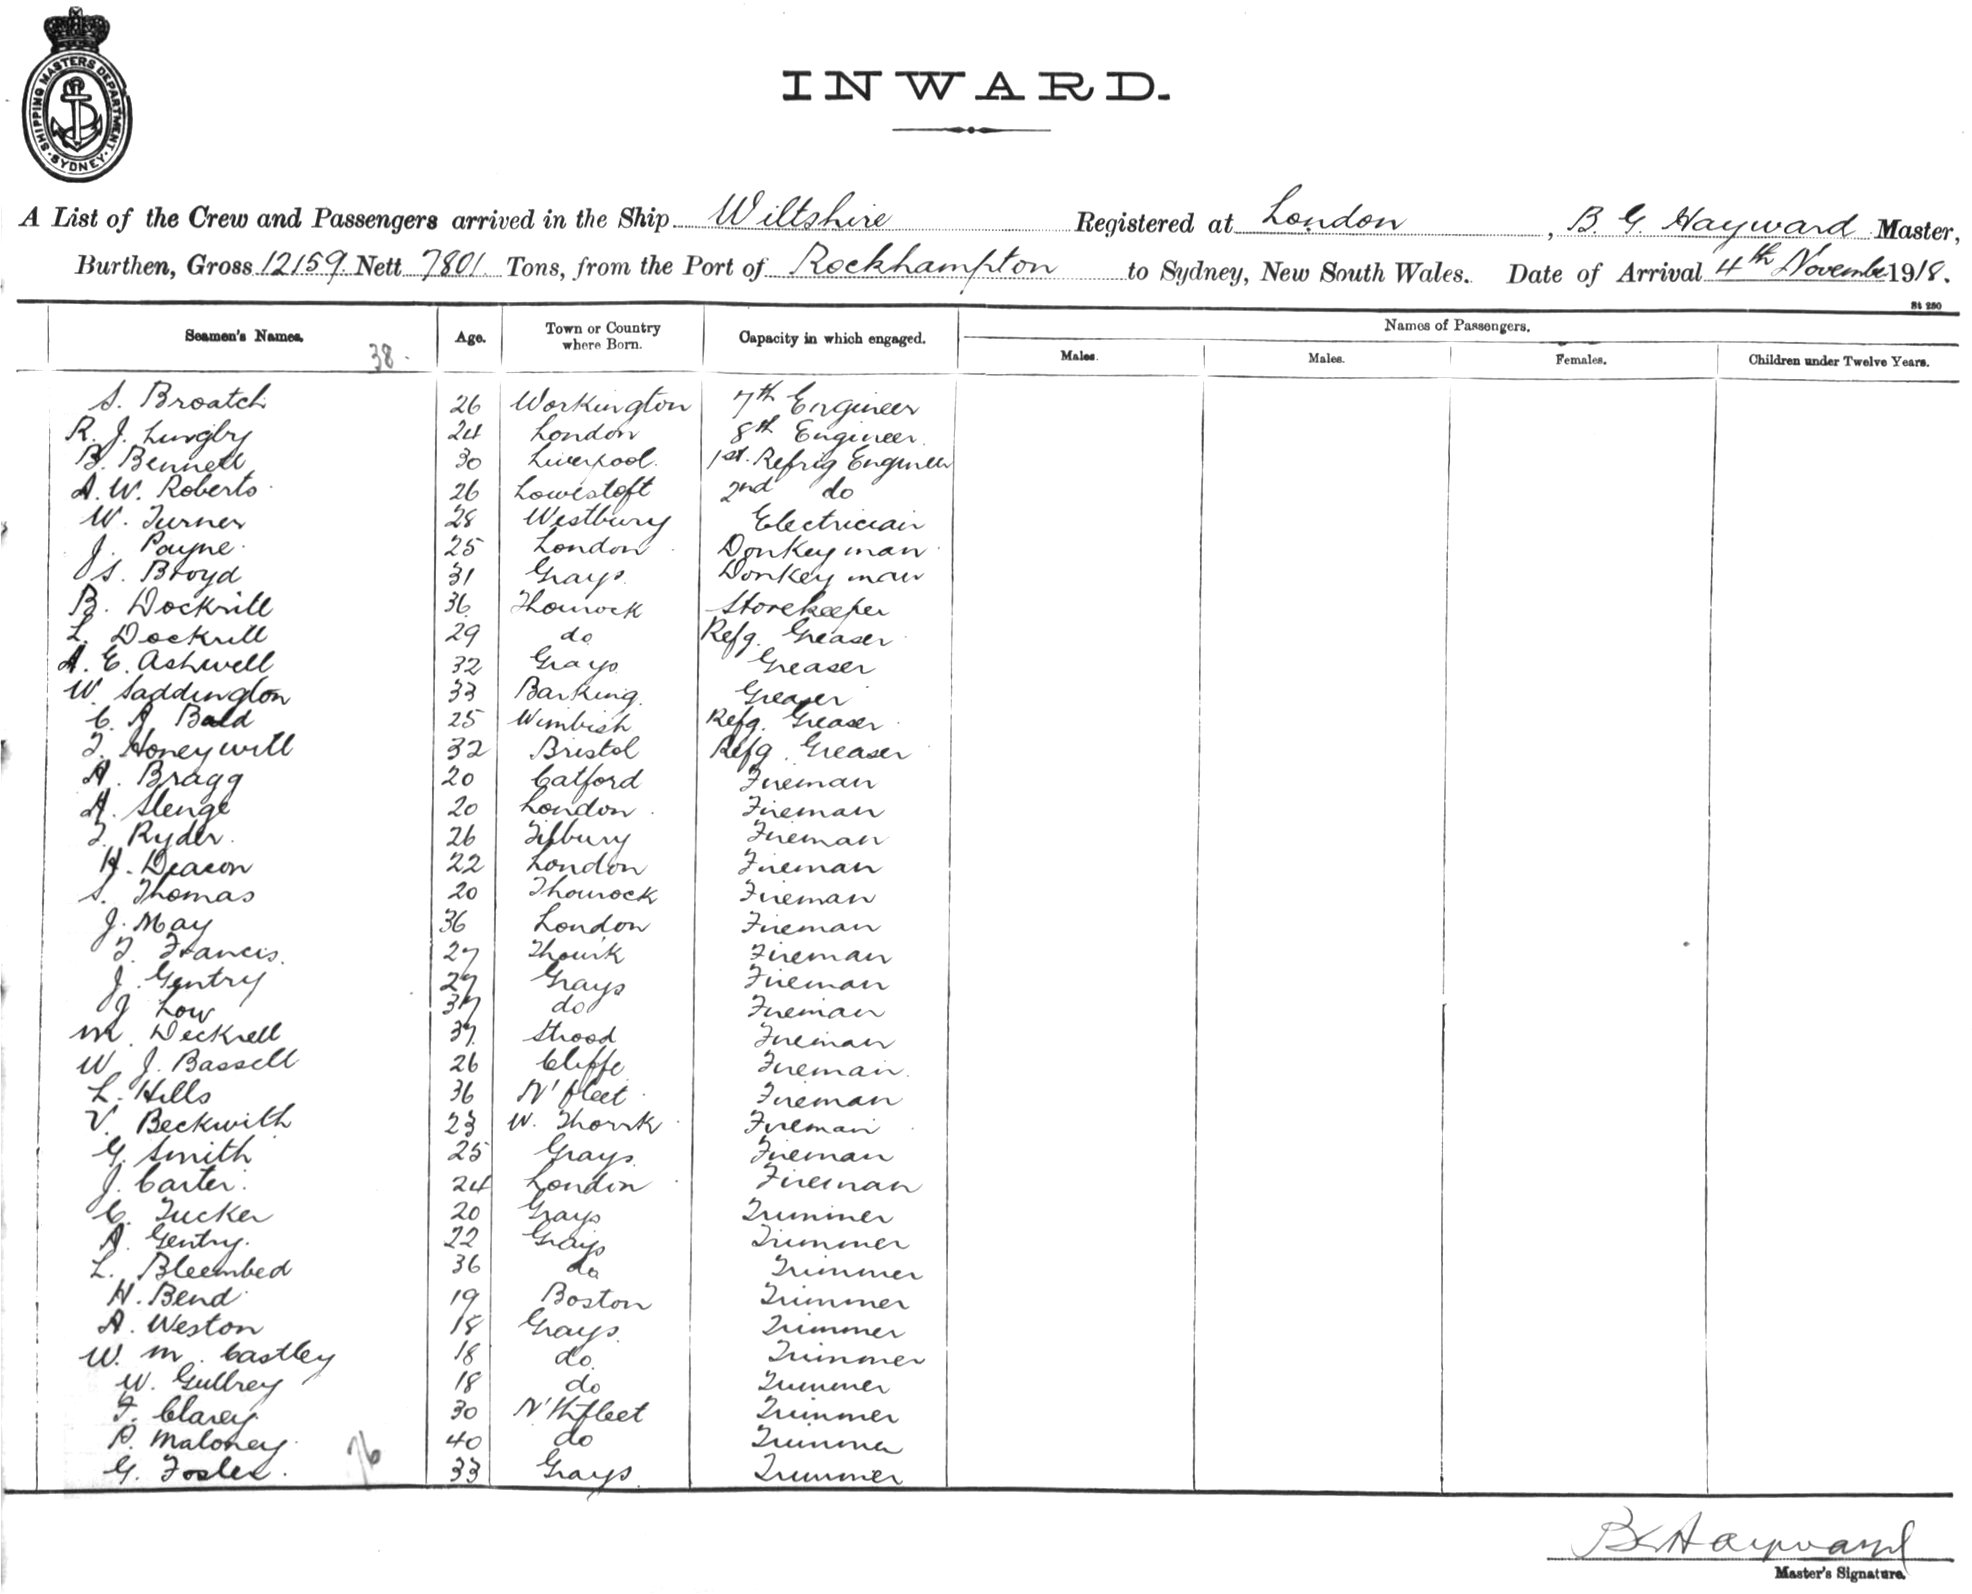 SHIPPING MASTERS DEPARTMENT. SYDNEY.
INWARD.
A List of the Crew and Passengers arrived in the Ship Wiltshire Registered at London, B. G. Hayward Master,
Burthen, Gross 12159 Nett 7801 Tons, from the Port of Rockhampton to Sydney, New South Wales. Date of Arrival 4th November 1918.
St 280
Seamen's Names. Age. Town or Country where Born. Capacity in which engaged. Names of Passengers.
Males. Males. Females. Children under Twelve Years.
38.
S. Broatch 26 Workington 7th Engineer
R. J. Lungby 24 London 8th Engineer.
B. Bennett 30 Liverpool. 1st. Refrig Engineer
A. W. Roberts 26 Lowestoft 2nd do
W. Turner 28 Westbury Electrician
J. Payne 25 London Donkeyman
S. Broyd 31 Grays Donkeyman
B. Dockrill 36 Thourock Storekeeper
L. Dockrill 29 do Refg. Greaser
A. E. Ashwell 32 Grays Greaser
W. Saddington 33 Barking Greaser
C. A. Bald 25 Wimbish Refg. Greaser
T. Honeywill 32 Bristol Refg. Greaser
A. Bragg 20 Catford Fireman
A. Slenge 20 London Fireman
T. Ryder. 26 Tilbury Fireman
H. Deacon 22 London Fireman
S. Thomas 20 Thourock Fireman
J. May 36 London Fireman
T. Francis. 27 Thour'k Fireman
J. Gentry 27 Grays Fireman
J Low 37 do Fireman
M. Deckrell 37 Strood Fireman
W. J. Bassell 26 Cliffe Fireman
L. Hills 36 N'fleet Fireman
V. Beckwith 23 W. Thorrk Fireman
G. Smith 25 Grays Fireman
J. Carter. 24 London Fireman
C. Tucker 20 Grays Trimmer
A. Gentry. 22 Grays Trimmer
L. Bleembed 36 do Trimmer
H. Bend 19 Boston Trimmer
A. Weston 18 Grays Trimmer
W. M. Castley 18 do Trimmer
W. Gullrey 18 do Trimmer
F. Clarey 30 N'thfleet Trimmer
P. Maloney 40 do Trimmer
G. Foster. 33 Grays Trimmer
76
B G Hayward
Master's Signature.